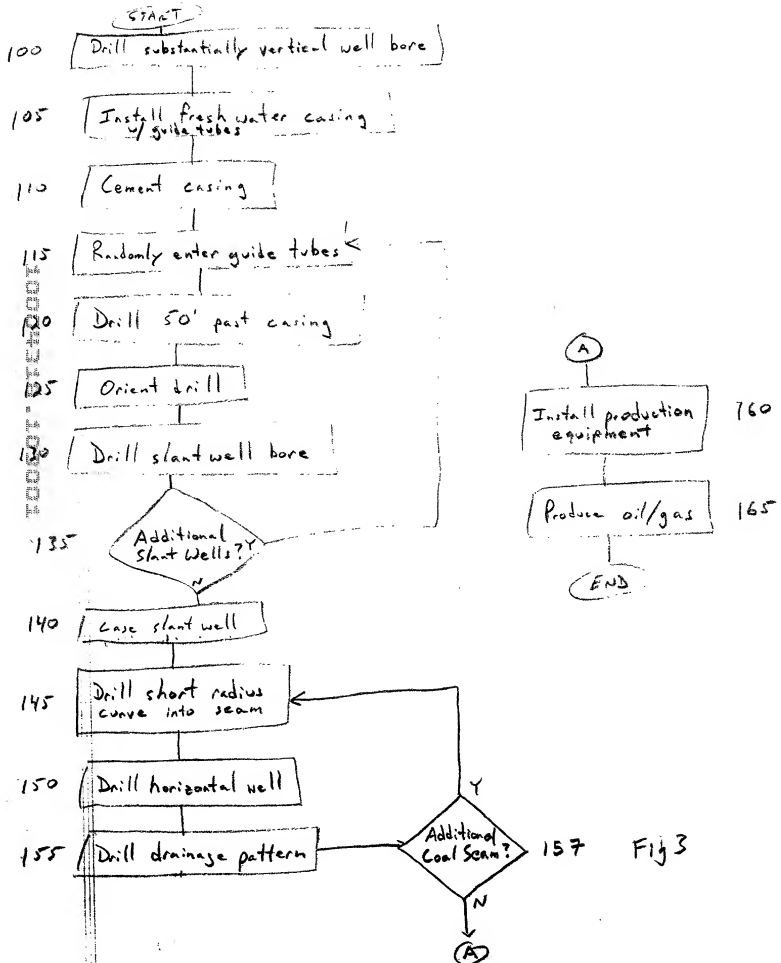 START
100 Drill substantially vertical well bore
105 Install fresh water casing
w/ guide tubes
110 Cement casing
115 Randomly enter guide tubes
120 Drill 50' past casing
125 Orient drill
130 Drill slant well bore
135 Additional
Slant Wells? Y
N
140 Case slant well
145 Drill short radius
curve into seam
150 Drill horizontal well
155 Drill drainage pattern
Y
Additional
Coal Seam? 157
N
A
A
Install production
equipment 160
Produce oil/gas 165
END
Fig 3